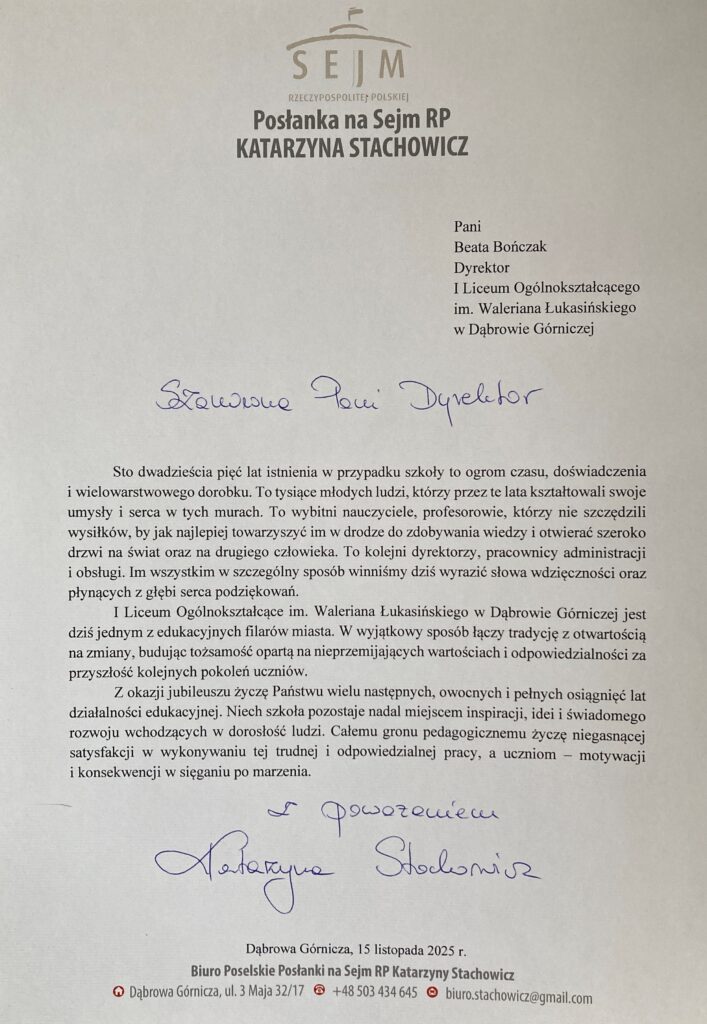 SEJM
RZECZYPOSPOLITEJ POLSKIEJ
Posłanka na Sejm RP
KATARZYNA STACHOWICZ
Pani
Beata Bończak
Dyrektor
I Liceum Ogólnokształcącego
im. Waleriana Łukasińskiego
w Dąbrowie Górniczej
Szanowna Pani Dyrektor
Sto dwadzieścia pięć lat istnienia w przypadku szkoły to ogrom czasu, doświadczenia
i wielowarstwowego dorobku. To tysiące młodych ludzi, którzy przez te lata kształtowali swoje
umysły i serca w tych murach. To wybitni nauczyciele, profesorowie, którzy nie szczędzili
wysiłków, by jak najlepiej towarzyszyć im w drodze do zdobywania wiedzy i otwierać szeroko
drzwi na świat oraz na drugiego człowieka. To kolejni dyrektorzy, pracownicy administracji
i obsługi. Im wszystkim w szczególny sposób winniśmy dziś wyrazić słowa wdzięczności oraz
płynących z głębi serca podziękowań.
I Liceum Ogólnokształcące im. Waleriana Łukasińskiego w Dąbrowie Górniczej jest
dziś jednym z edukacyjnych filarów miasta. W wyjątkowy sposób łączy tradycję z otwartością
na zmiany, budując tożsamość opartą na nieprzemijających wartościach i odpowiedzialności za
przyszłość kolejnych pokoleń uczniów.
Z okazji jubileuszu życzę Państwu wielu następnych, owocnych i pełnych osiągnięć lat
działalności edukacyjnej. Niech szkoła pozostaje nadal miejscem inspiracji, idei i świadomego
rozwoju wchodzących w dorosłość ludzi. Całemu gronu pedagogicznemu życzę niegasnącej
satysfakcji w wykonywaniu tej trudnej i odpowiedzialnej pracy, a uczniom – motywacji
i konsekwencji w sięganiu po marzenia.
Z poważaniem
Katarzyna Stachowicz
Dąbrowa Górnicza, 15 listopada 2025 r.
Biuro Poselskie Posłanki na Sejm RP Katarzyny Stachowicz
Dąbrowa Górnicza, ul. 3 Maja 32/17 +48 503 434 645 biuro.stachowicz@gmail.com